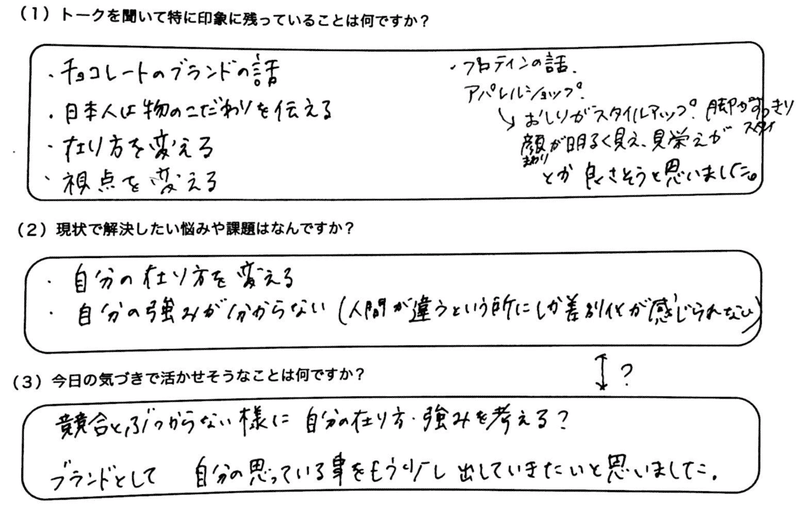 (1)トークを聞いて特に印象に残っていることは何ですか?
・チョコレートのブランドの話
・日本人は物のこだわりを伝える
・在り方を変える
・視点を変える
・プロテインの話.
アパレルショップ.
↳おしりがスタイルアップ. 脚がすっきり
顔が明るく見え、見栄えが
とか 良さそうと思いました。
(2)現状で解決したい悩みや課題はなんですか?
・自分の在り方を変える
・自分の強みが分からない(人間が違うという所にしか差別化が感じられない)
↕?
(3)今日の気づきで活かせそうなことは何ですか?
競合とぶつからない様に 自分の在り方・強みを考える?
ブランドとして 自分の思っている事をもう少し出していきたいと思いました。